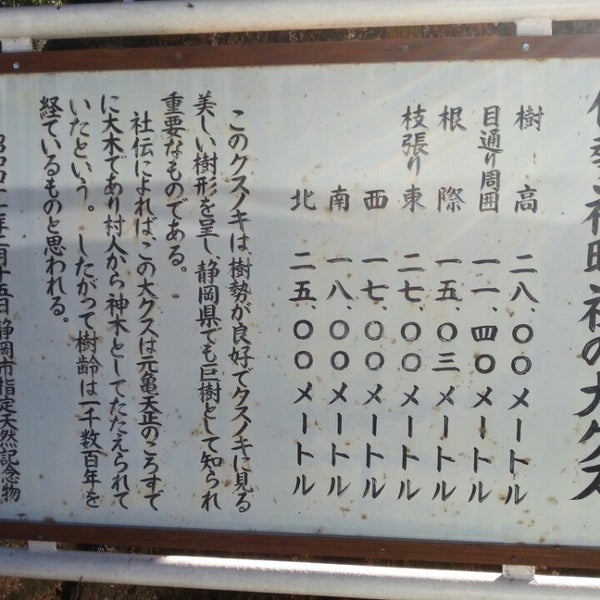 伊勢神明社の大クス
樹高 二八、〇〇メートル
目通り周囲 一一、四〇メートル
根際 一五、〇三メートル
枝張り 東 二七、〇〇メートル
西 一七、〇〇メートル
南 一八、〇〇メートル
北 二五、〇〇メートル
このクスノキは、樹勢が良好でクスノキに見る
美しい樹形を呈し、静岡県でも巨樹として知られ
重要なものである。
社伝によれば、この大クスは元亀天正のころすで
に大木であり村人から神木としてたたえられて
いたという。したがって樹齢は一千数百年を
経ているものと思われる。
十五日 静岡市指定天然記念物